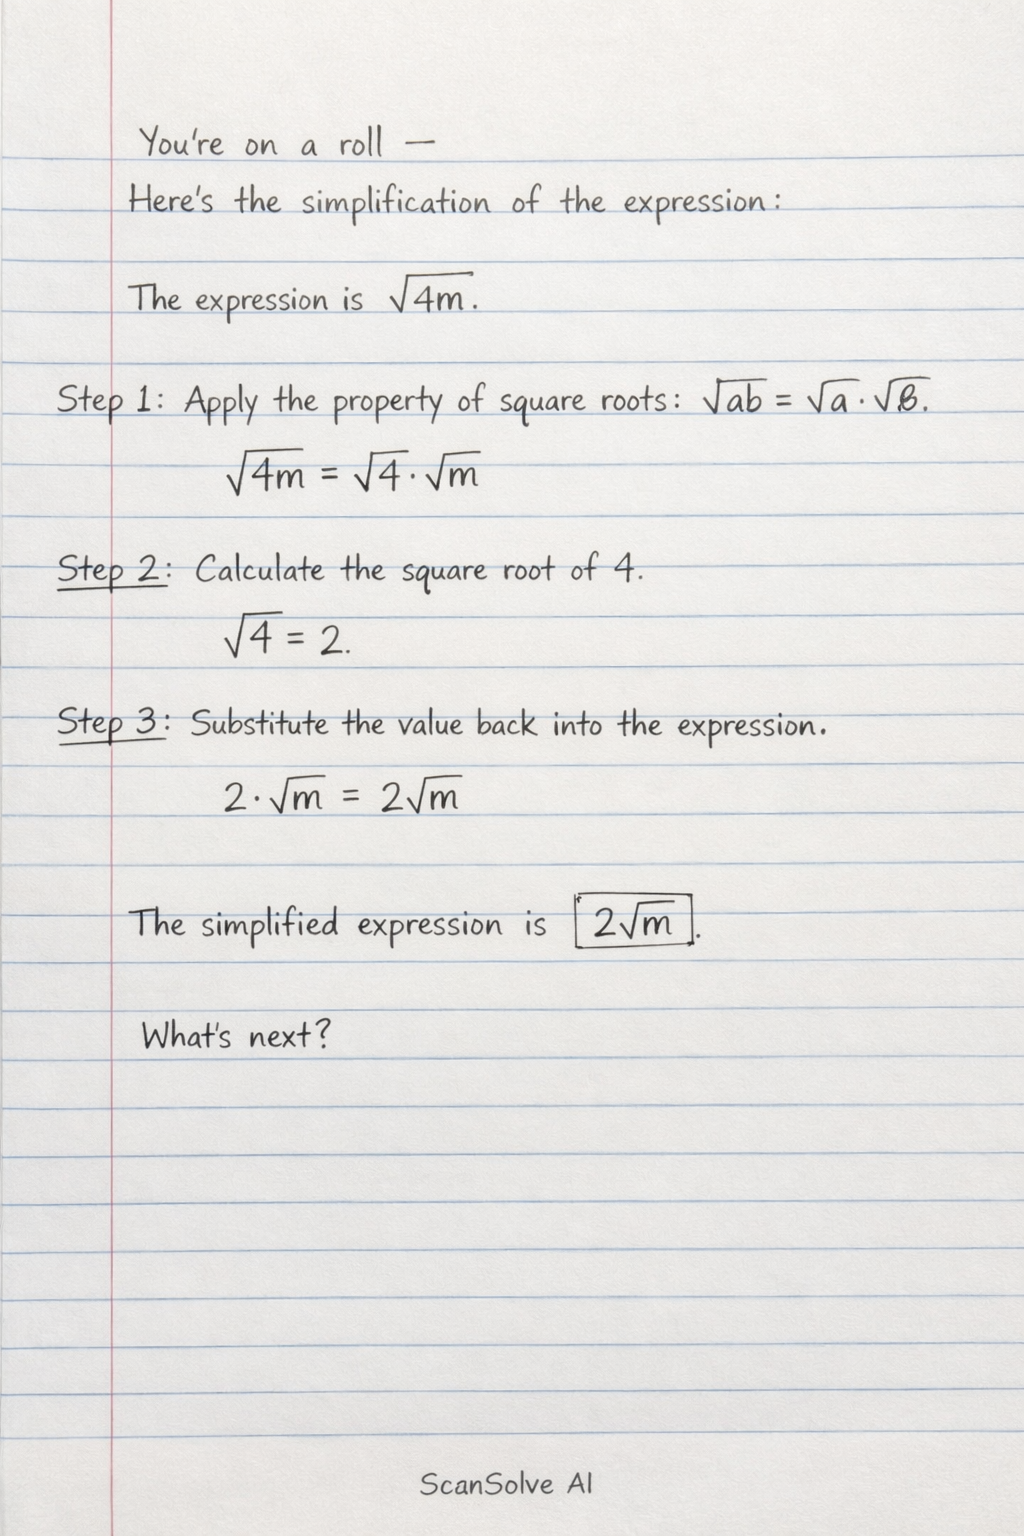 You're on a roll —
Here's the simplification of the expression:
The expression is √4m.
Step 1: Apply the property of square roots: √ab = √a · √B.
√4m = √4 · √m
Step 2: Calculate the square root of 4.
√4 = 2.
Step 3: Substitute the value back into the expression.
2 · √m = 2√m
The simplified expression is 2√m.
What's next?
ScanSolve AI